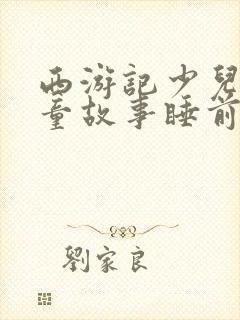 西游記少兒
童故事睡前
劉家良